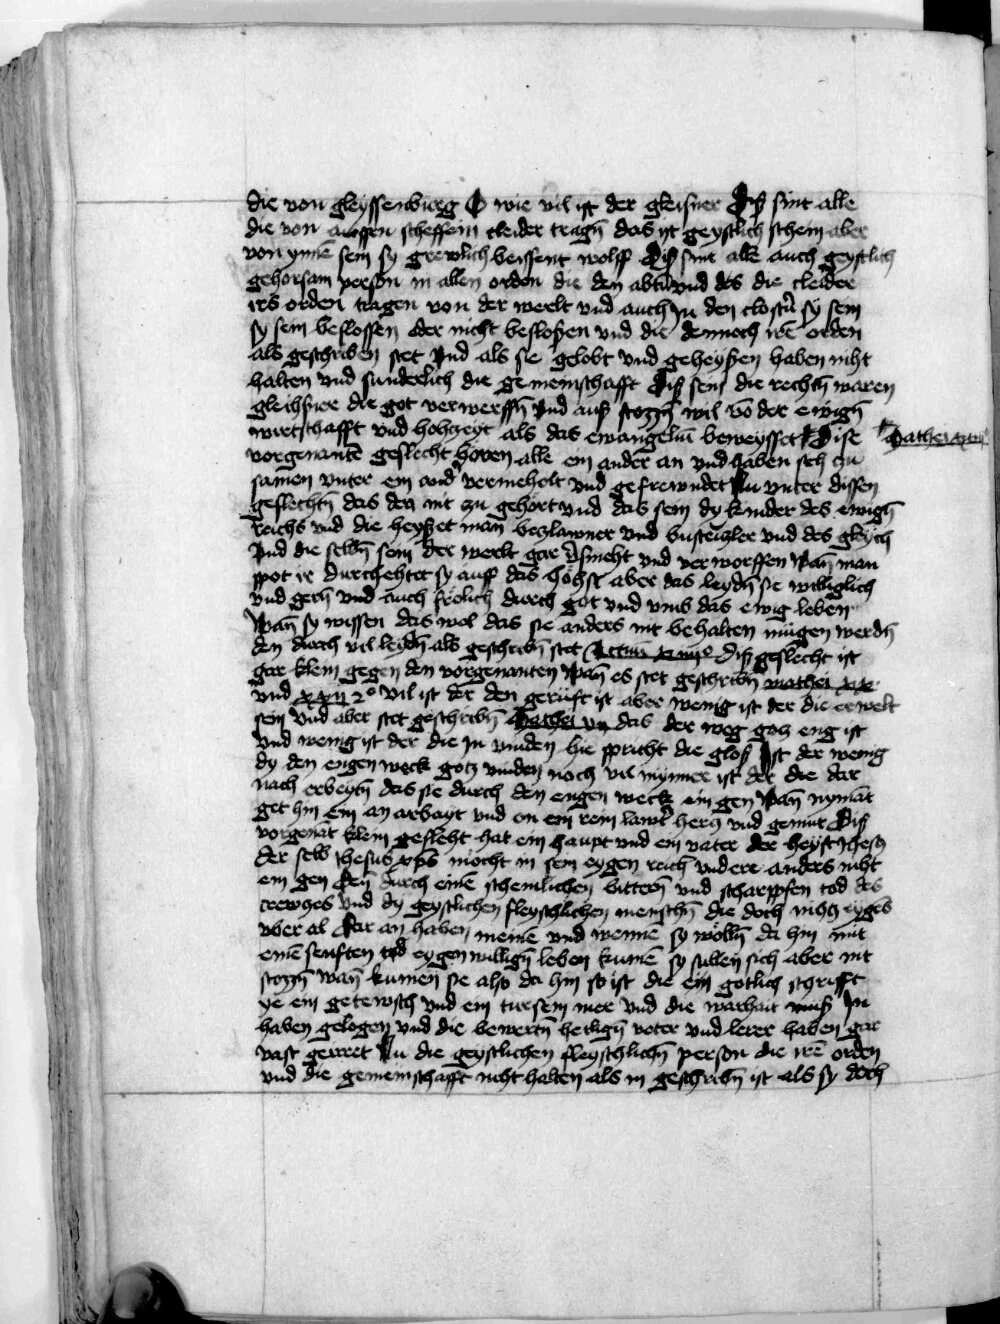 die von gleyssenburg O wie vil ist der gleisner Diß sint alle
die von aussen scheffein cleider tragn̄ das ist geystlich schein aber
von ynnē sein sy grewlich beissent wolff Diß sint alle auch geystlich
gehorsam person in allen orden die den abtū vnd des die cleider
irs orden tragen von der werlt vnd auch in den clostn̄ sy sein
sy sein beslossen oder nicht besloßen vnd die dennoch irē orden
als geschriben stet Vnd als sie gelobt vnd geheyßen haben niht
halten vnd sunderlich die gemeinschafft Diß sein die rechtn̄ waren
gleichsner die got verwerffn̄ Vnd auß stozzn̄ wil vō der ewign̄
wirtschafft vnd hohzeyt als das ewangeliū beweysset Dise
Mathei xxii
vorgenantē geslecht horen alle ein ander an vnd haben sich zu
samen vnter ein and vermehelt vnd gefrewndet Nu vnter dissen
geslechtn̄ das den nit zu gehort vnd das sein dy kinder des ewign̄
reichs vnd die heyßet man beglawner vnd vnd des gleych
Vnd die selbn̄ sein der werlt gar vsmeht vnd verworffen Wan̄ man
spot ir durchehtet sy auff das höhst aber das leydn̄ sie williglich
vnd gern̄ vnd auch frölich durch got vnd vmb das ewig leben
Wan̄ sy wissen das wol das sie anders nit behalten mügen werdn̄
den durch vil leydn̄ als geschribn̄ stet Actuū xiiii° Diß geslecht ist
gar klein gegen den vorgenanten Wan̄ es stet geschribn̄ mathei xix
vnd xxii 2° vil ist der den gerüft ist aber wenig ist der die erwelt
sein Vnd aber stet geschribn̄ Mathei vii das der weg gotz eng ist
vnd wenig ist der die in vinden hie spricht die gloß Ist der wenig
dy den engen weck gotz vinden noch vil mynner ist der die dar
nach erbeytn̄ das sie durch den engen weck ein gen Wan̄ nymāt
get hin ein an arbayt vnd on ein rein lawt herz vnd gemüt Diß
vorgenāt klein gesleht hat ein haupt vnd ein vater der heyst Jhesus
der selb jhesus xp̄s mocht in sein eygen reich vnd ere anders niht
ein gen den̄ durch einē schemlichen bittern̄ vnd scharpffen tod des
crewtzes Vnd dy geystlichen fleyschlichen menschn̄ die doch nichtz eygēs
vber al dar an haben meinē vnd wennē sy wolln̄ da hin mit
einē senften vnd eygen willign̄ leben kumē sy sullen sich aber nit
stozzn̄ wan̄ kumen sie also da hin so ist die ein gotlich schrifft
ye ein getewsch vnd ein nier vnd die warhait muß in
haben gelogen vnd die bewertn̄ heilign̄ veter vnd lerer haben gar
vast geirret Nu die geystlichen fleyschlichn̄ person die irē orden
vnd die gemeinschafft nicht halten als in geschribn̄ ist als sy doch